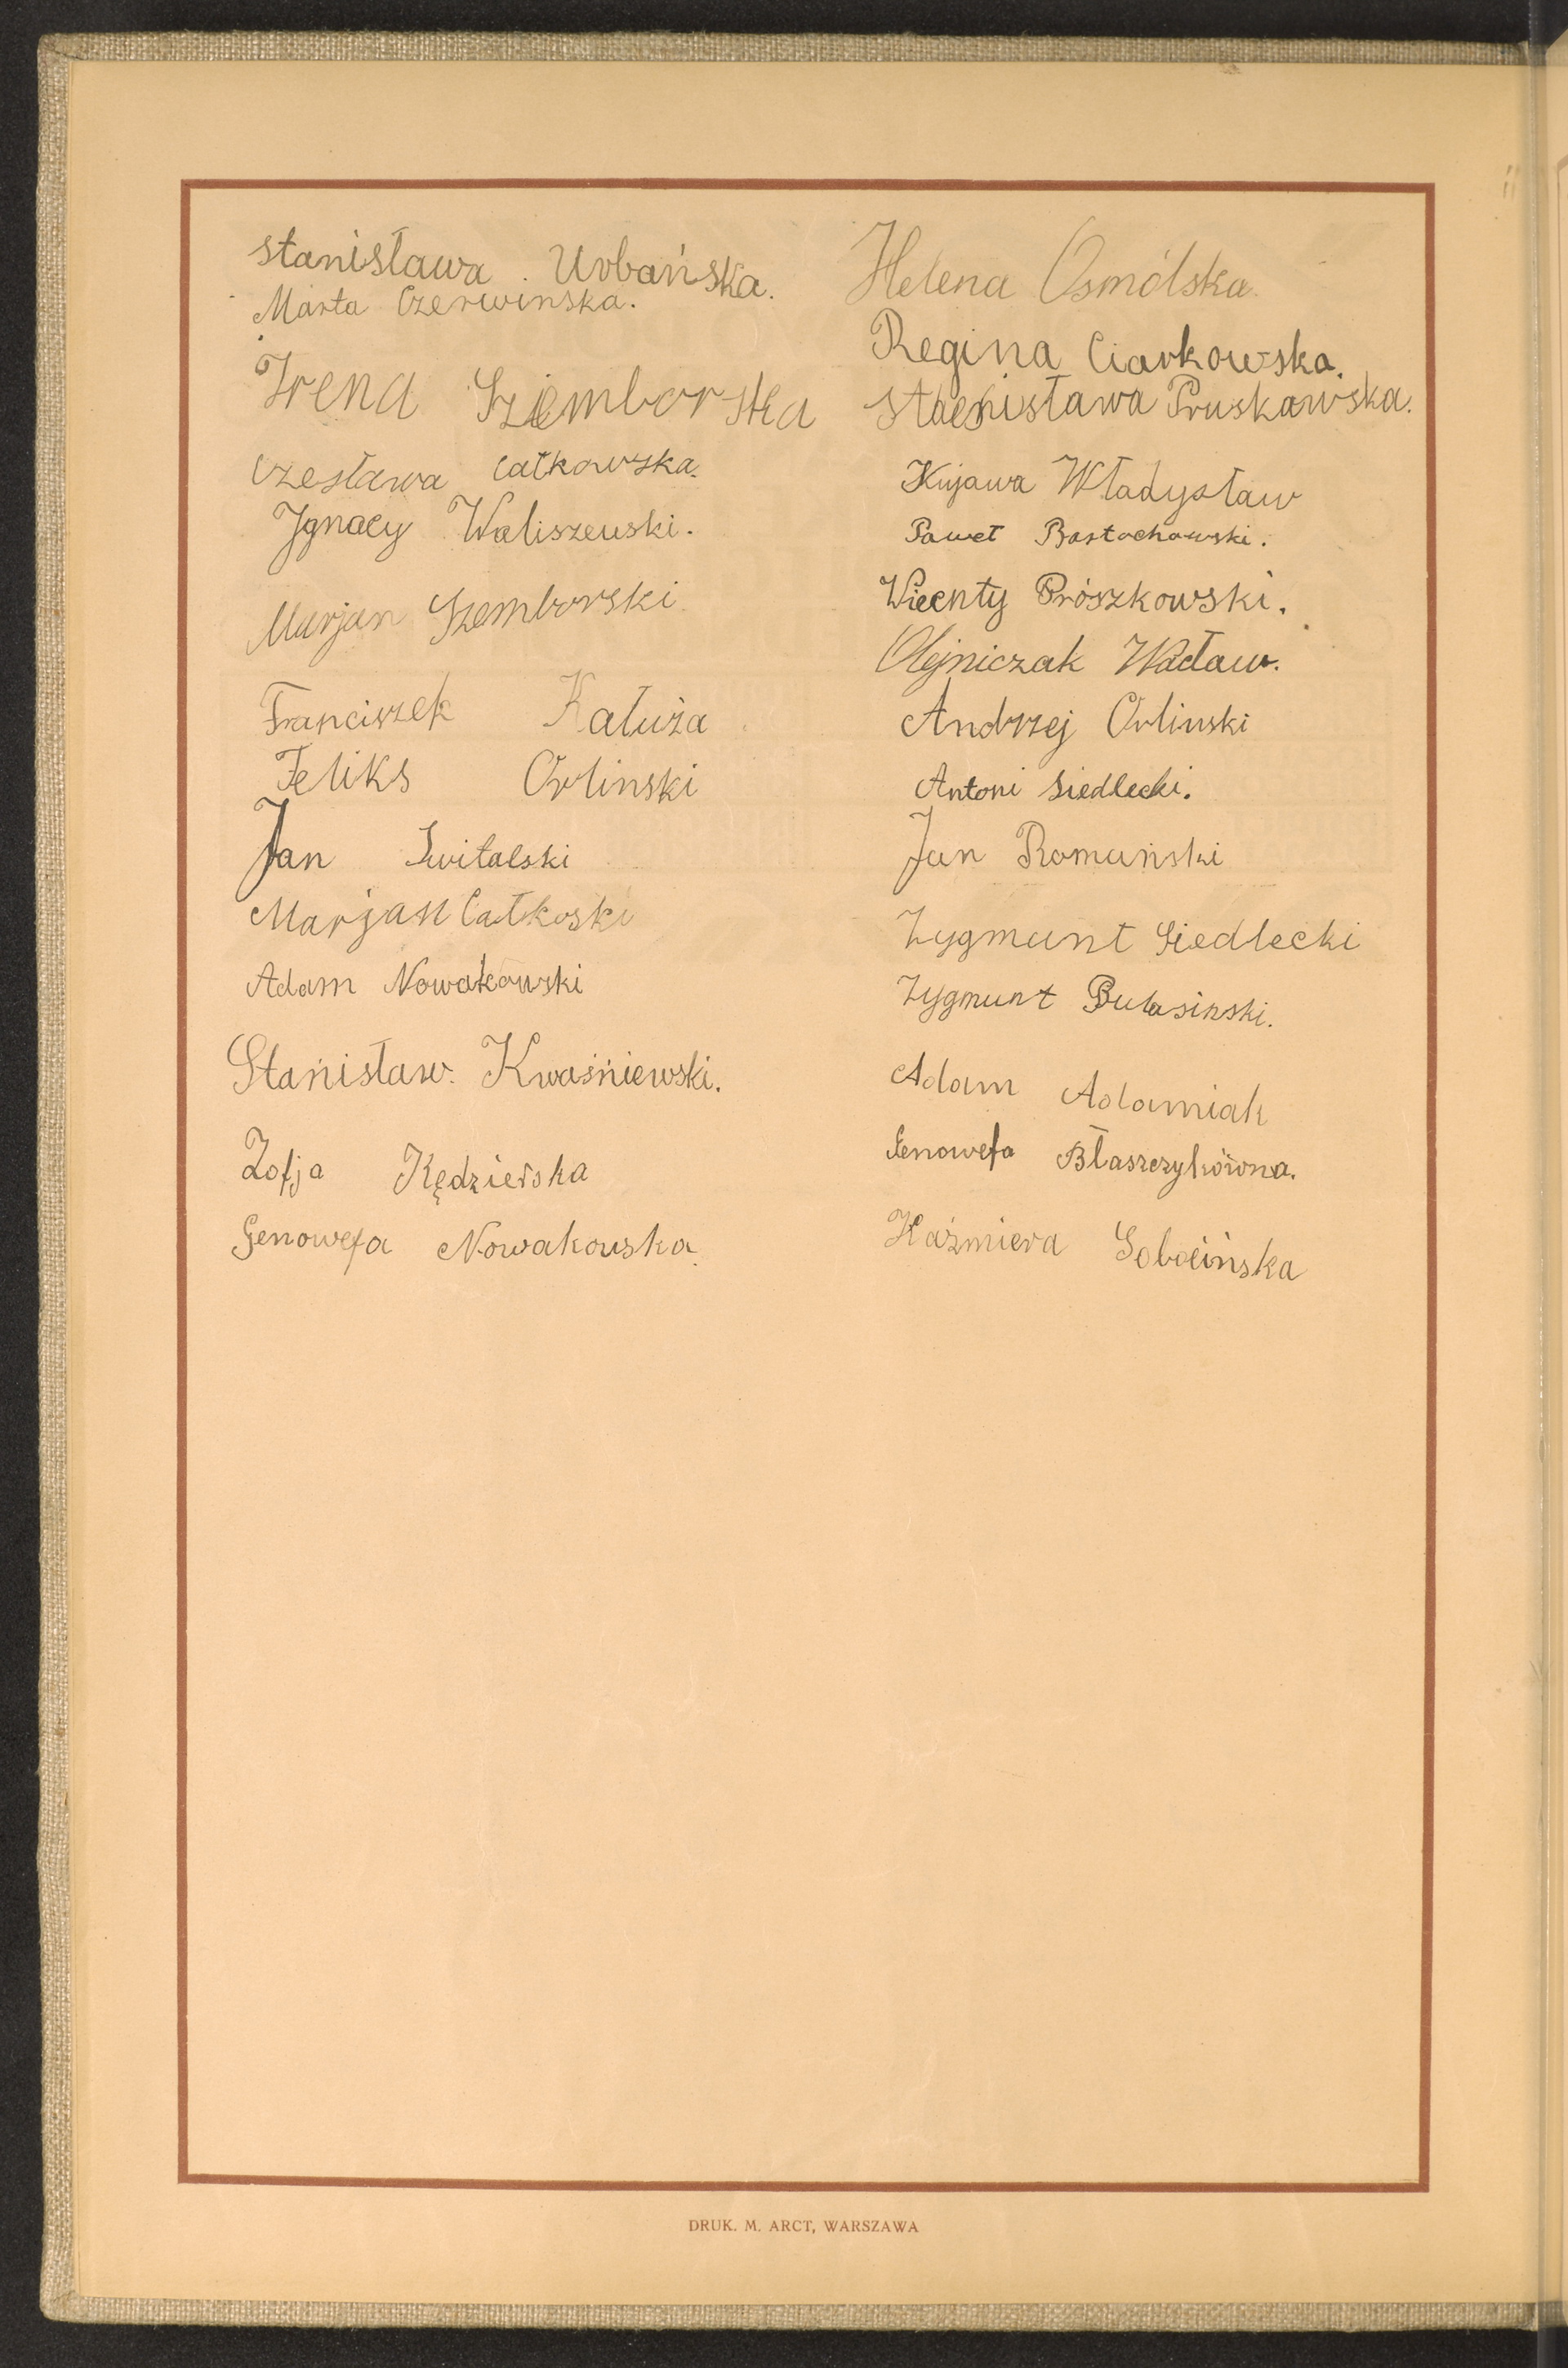 Stanisława Urbańska.
Marta Czerwinska.
Irena Sziemborska
Czesława Całkowska.
Ignacy Waliszewski.
Marjan Szemborski
Franciszek Kałuża
Feliks Orlinski
Jan Switalski
Marjan Całkoski
Adam Nowakowski
Stanisław. Kwaśniewski.
Zofja Kędzierska
Genowefa Nowakowska.
Helena Osmólska.
Regina Ciarkowska.
Stanisława Pruskawska.
Kujawa Władysław
Paweł Bartochowski.
Wiecnty Prószkowski.
Olejniczak Wacław.
Andrzej Orlinski
Antoni Siedlecki.
Jan Romański
Zygmunt Siedlecki
Zygmunt
Adam Adamiak
Genowefa Błaszczykówna.
Kaźmiera Sobocińska
DRUK. M. ARCT, WARSZAWA